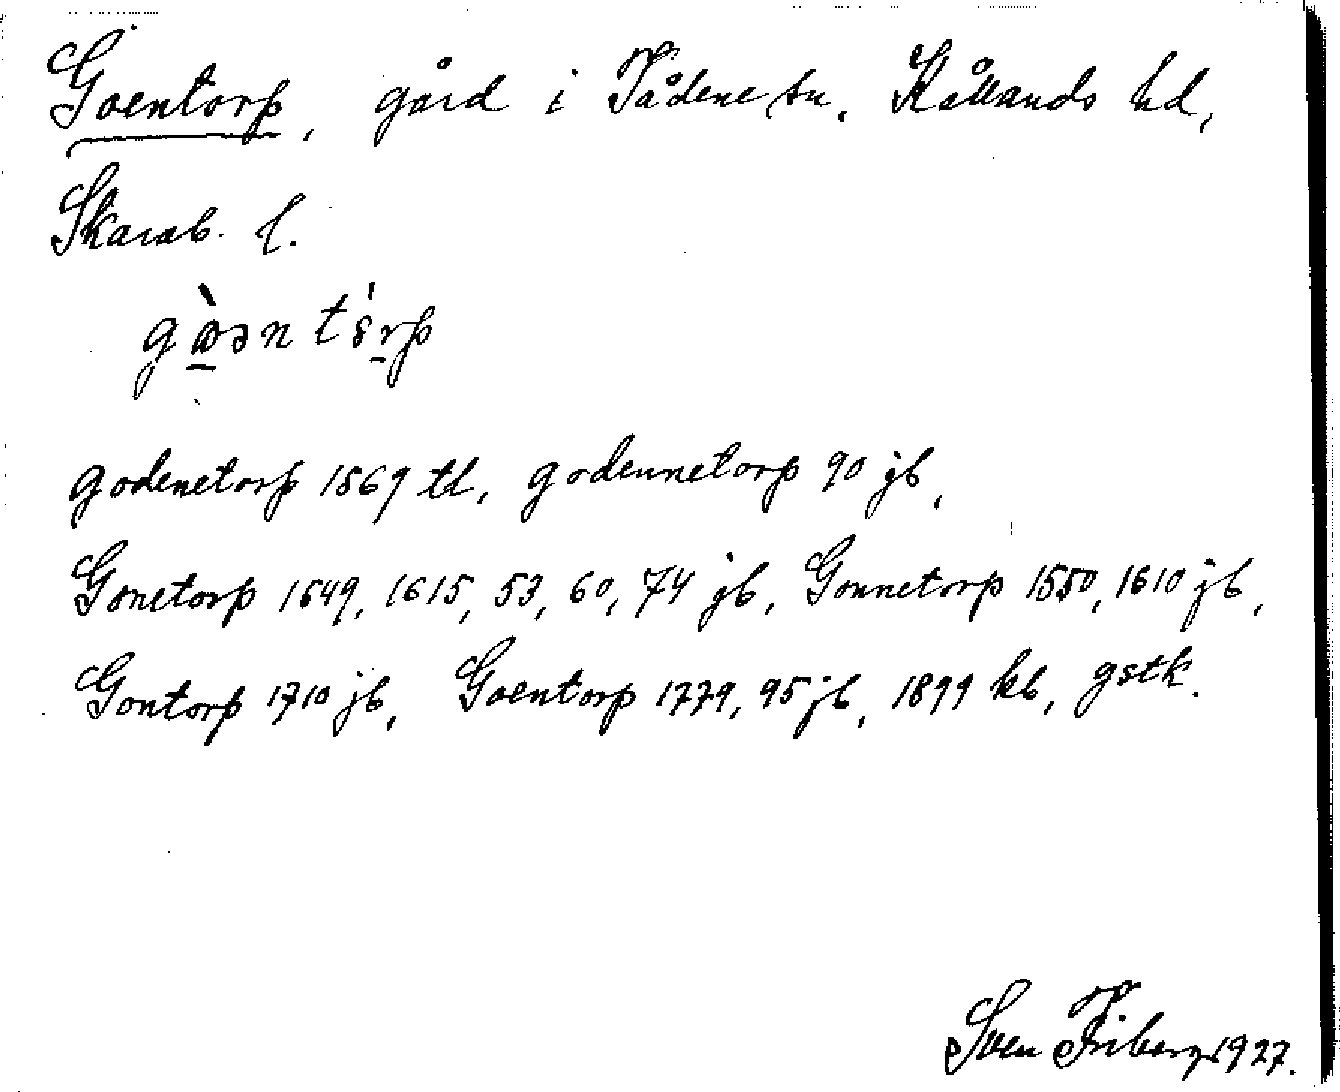 Goentorp, gård i Tådene sn, Kållands hd,
Skarab. l.
gòəntórp
godenetorp 1569 tl, godennetorp 90 jb,
Gonetorp 1549, 1615, 53, 60, 74 jb, Gonnetorp 1550, 1610 jb,
Gontorp 1710 jb, Goentorp 1779, 95 jb, 1899 kb, gstk.
Sven Friberg 1927.